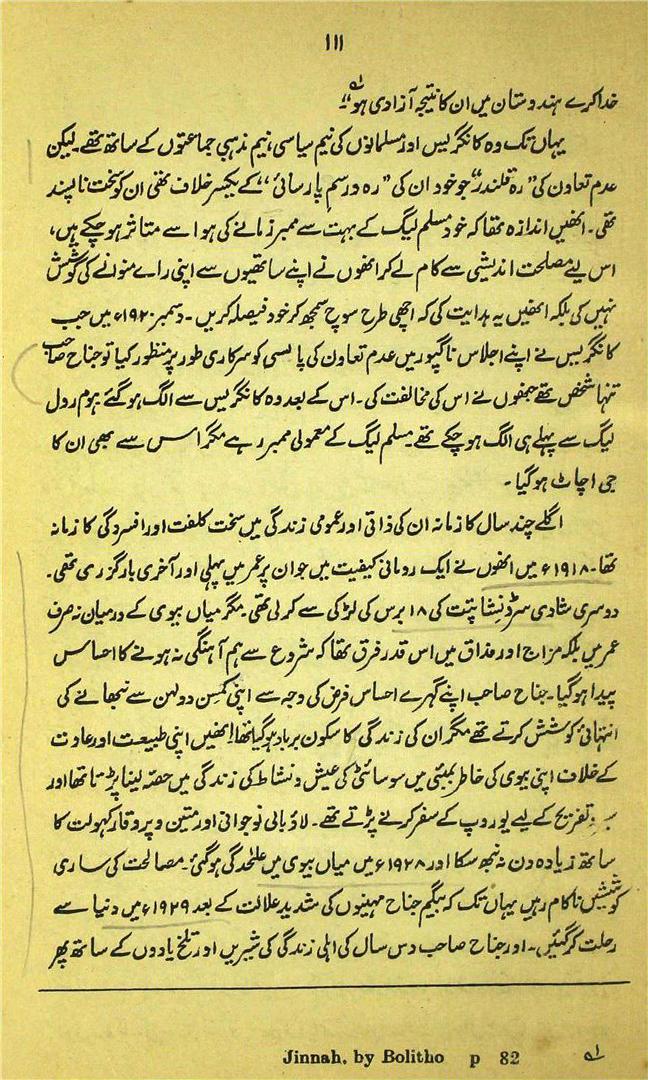 ۱۱۱
خدا کرے ہندوستان میں ان کا نتیجہ آزادی ہو"۔ ؂۱
یہاں تک وہ کانگریس اور مسلمانوں کی نیم سیاسی، نیم مذہبی جماعتوں کے ساتھ تھے۔ لیکن
عدم تعاون کی "رہ قلندر" جو خود ان کی "رہ و رسم پارسائی" کے یکسر خلاف تھی ان کو سخت ناپسند
تھی۔ انھیں اندازہ تھا کہ خود مسلم لیگ کے بہت سے ممبر زمانے کی ہوا سے متاثر ہو چکے ہیں،
اس لیے مصلحت اندیشی سے کام لے کر انھوں نے اپنے ساتھیوں سے اپنی رائے منوانے کی کوشش
نہیں کی بلکہ انھیں یہ ہدایت کی کہ اچھی طرح سوچ سمجھ کر خود فیصلہ کریں۔ دسمبر ۱۹۲۰ء میں جب
کانگریس نے اپنے اجلاس ناگپور میں عدم تعاون کی پالیسی کو سرکاری طور پر منظور کیا تو جناح صاحب
تنہا شخص تھے جنھوں نے اس کی مخالفت کی۔ اس کے بعد وہ کانگریس سے الگ ہو گئے ہوم رول
لیگ سے پہلے ہی الگ ہو چکے تھے۔ مسلم لیگ کے معمولی ممبر رہے مگر اس سے بھی ان کا
جی اچاٹ ہو گیا۔
اگلے چند سال کا زمانہ ان کی ذاتی اور عمومی زندگی میں سخت کلفت اور افسردگی کا زمانہ
تھا۔ ۱۹۱۸ء میں انھوں نے ایک رومانی کیفیت میں جو ان پر عمر میں پہلی اور آخری بار گزری تھی۔
دوسری شادی سر ڈنشا پتت کی ۱۸ برس کی لڑکی سے کر لی تھی۔ مگر میاں بیوی کے درمیان نہ صرف
عمر میں بلکہ مزاج اور مذاق میں اس قدر فرق تھا کہ شروع سے ہم آہنگی نہ ہونے کا احساس
پیدا ہو گیا۔ جناح صاحب اپنے گہرے احساس فرض کی وجہ سے اپنی کمسن دولہن سے نبھانے کی
انتہائی کوشش کرتے تھے مگر ان کی زندگی کا سکون برباد ہو گیا تھا! انھیں اپنی طبیعت اور عادت
کے خلاف اپنی بیوی کی خاطر بمبئی میں سوسائٹی کی عیش و نشاط کی زندگی میں حصہ لینا پڑتا تھا اور
تفریح کے لیے یوروپ کے سفر کرنے پڑتے تھے۔ لاؤبالی نوجوانی اور متین و پروقار کہولت کا
ساتھ زیادہ دن نہ نبھ سکا اور ۱۹۲۸ء میں میاں بیوی میں علٰحدگی ہو گئی۔ مصالحت کی ساری
کوششیں ناکام رہیں یہاں تک کہ بیگم جناح مہینوں کی شدید علالت کے بعد ۱۹۲۹ء میں دنیا سے
رحلت کر گئیں۔ اور جناح صاحب دس سال کی اہلی زندگی کی شیریں اور تلخ یادوں کے ساتھ پھر
؂۱ Jinnah. by Bolitho p 82